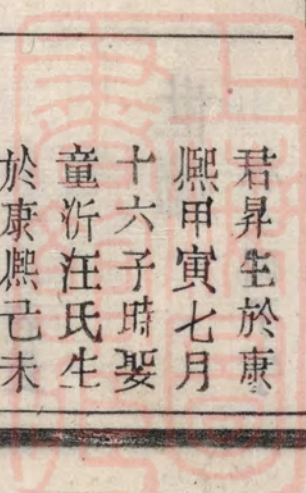 君昇生於康
熙甲寅七月
十六子時娶
童沂汪氏生
於康熙己未